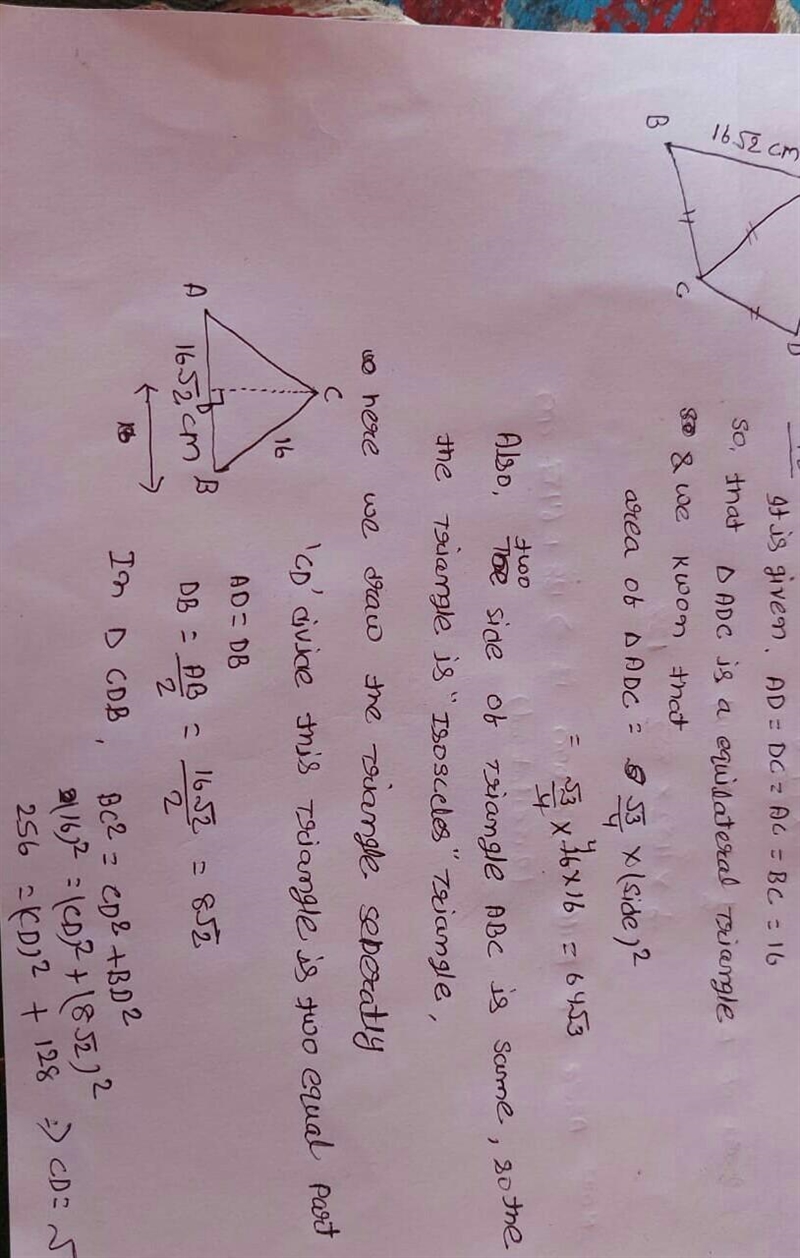 B
16√2 cm
C
D
It is given, AD = DC = AC = BC = 16
so, that △ ADC is a equilateral Triangle
& we kwon, that
area of △ ADC = √3/4 × (side)²
= √3/4 × 16 × 16 = 64√3
4
Also, two side of Triangle ABC is same, so the
the Triangle is "Isosceles" Triangle,
here we draw the Triangle seperatly
'CD' divide this Triangle is two equal part
A
C
16
D
16√2 cm
B
AD = DB
DB = AB/2 = 16√2/2 = 8√2
In △ CDB, BC² = CD² + BD²
(16)² = (CD)² + (8√2)²
256 = (CD)² + 128 ⇒ CD = √